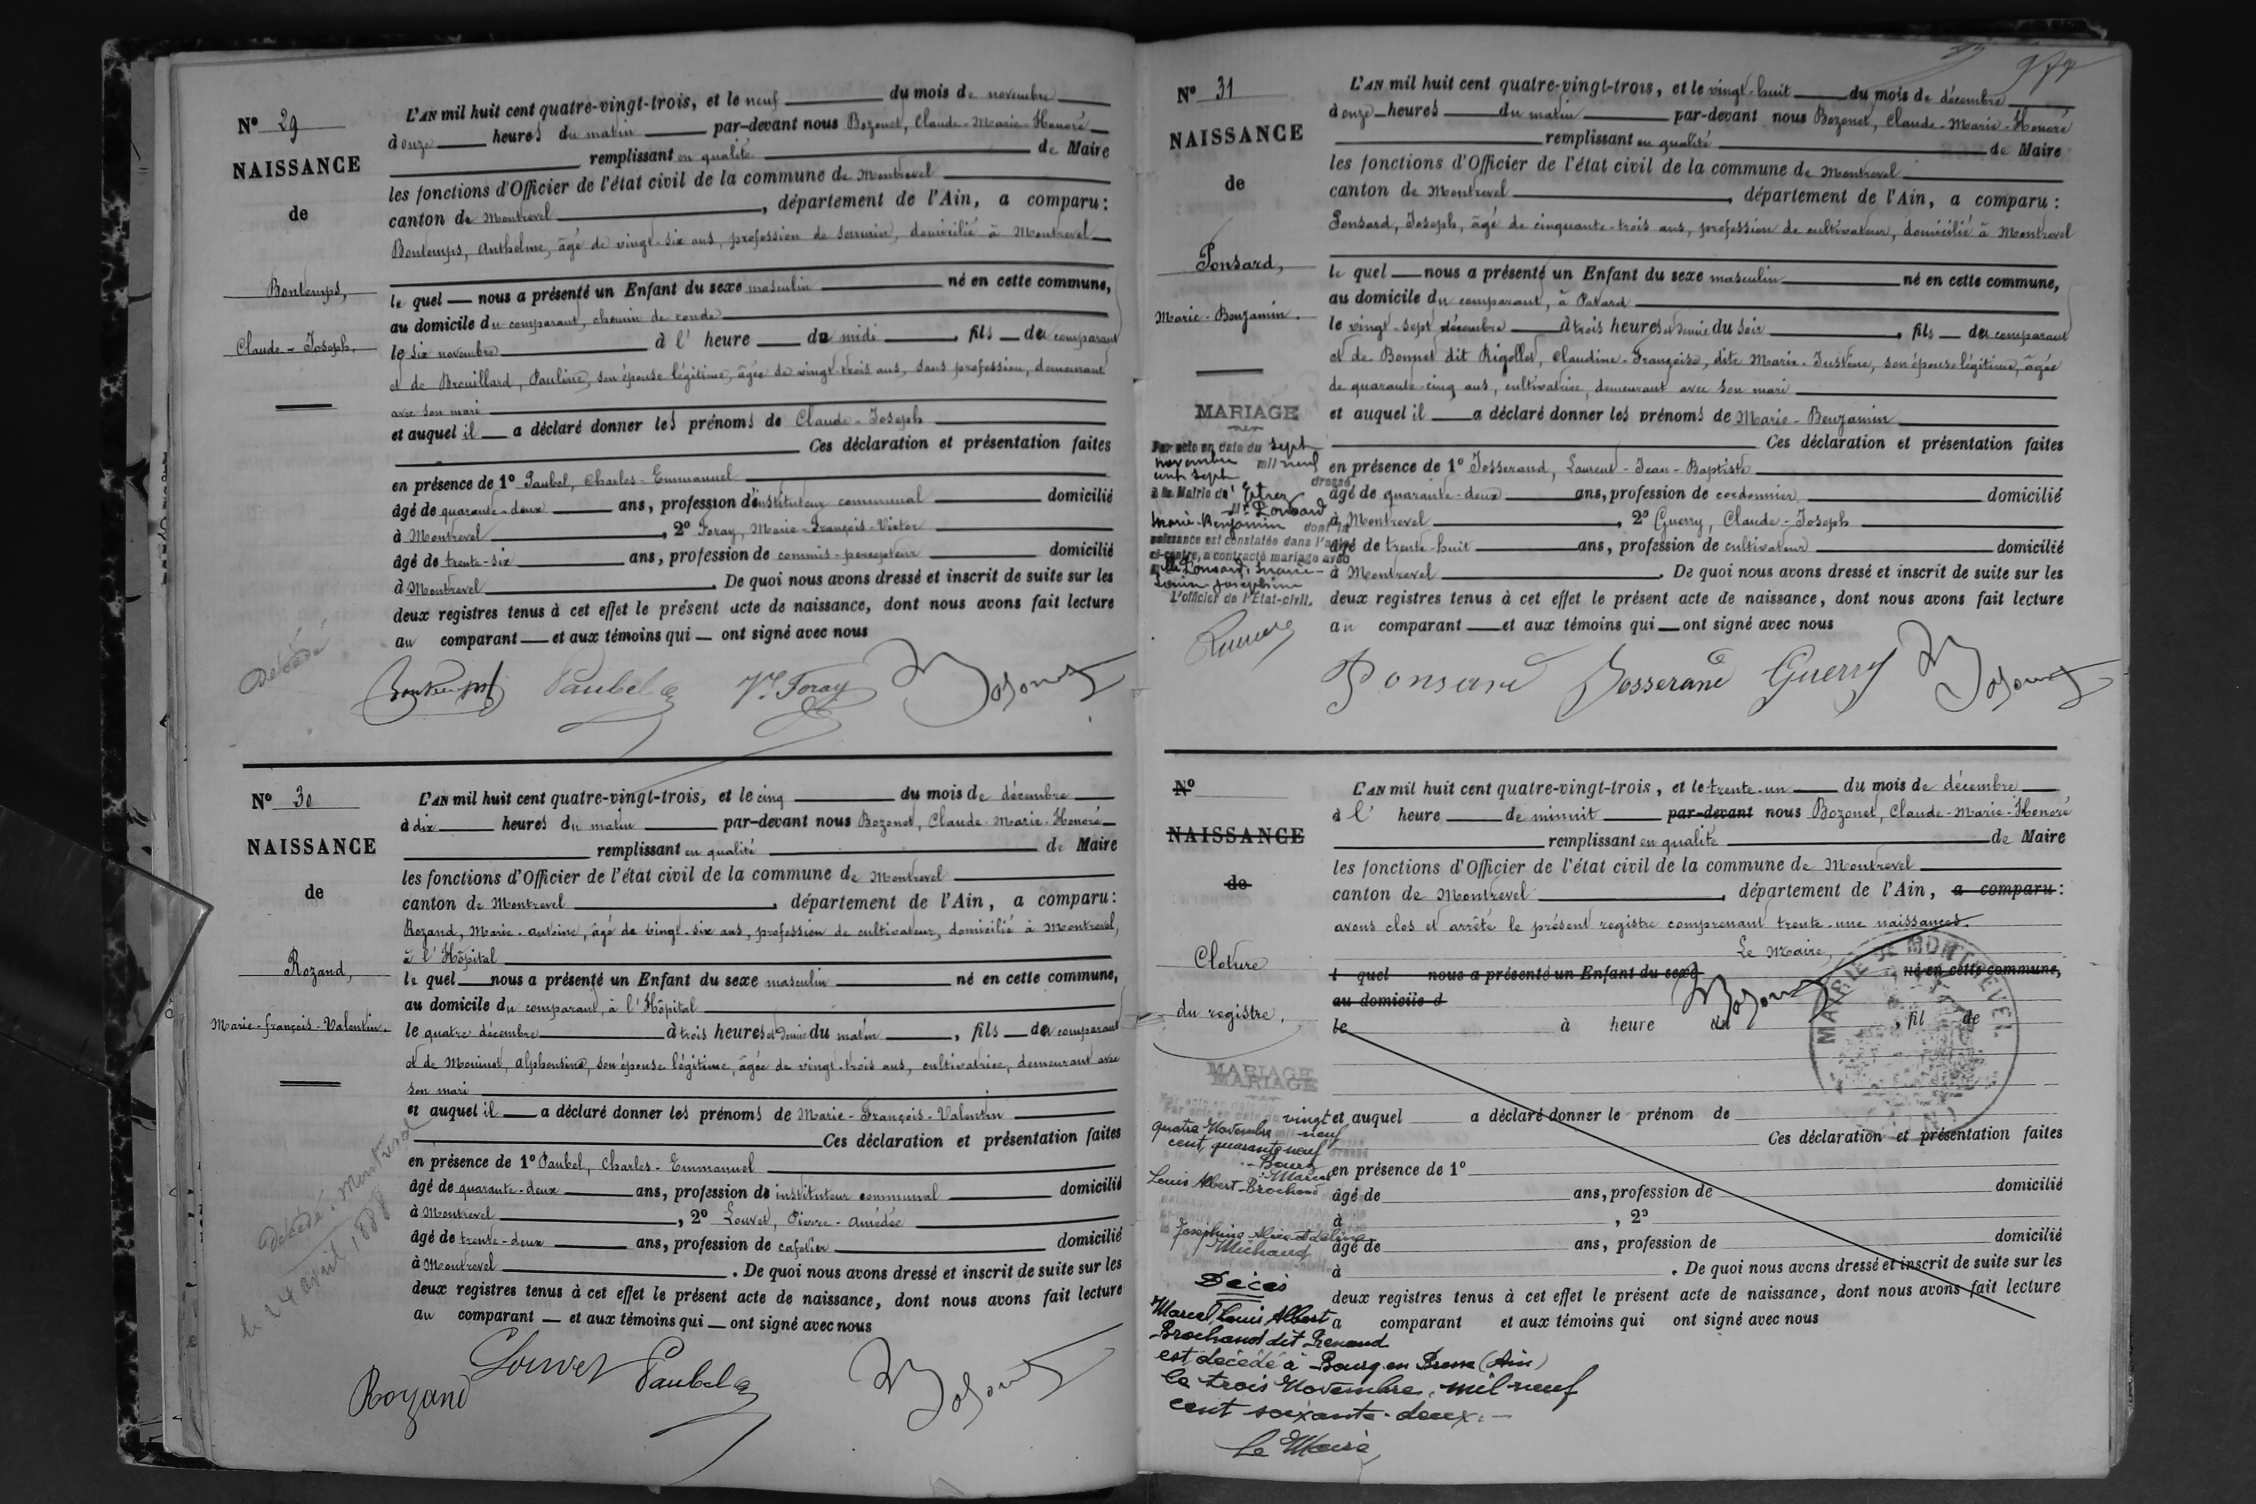 Nº 29
NAISSANCE
de
Bontemps,
Claude-Joseph,
L'AN mil huit cent quatre-vingt-trois, et le neuf du mois de novembre
à onze heures du matin par-devant nous Bozonet, Claude-Marie-Honoré
remplissant en qualité de Maire
les fonctions d'Officier de l'état civil de la commune de Montrevel
canton de Montrevel, département de l'Ain, a comparu:
Bontemps, Anthelme, âgé de vingt-six ans, profession de serrurier, domicilié à Montrevel
le quel nous a présenté un Enfant du sexe masculin né en cette commune,
au domicile du comparant, chemin de ronde
le six novembre à l' heure de midi, fils du comparant
et de Brouillard, Pauline, son épouse légitime, âgée de vingt-trois ans, sans profession, demeurant
avec son mari
et auquel il a déclaré donner les prénoms de Claude-Joseph
Ces déclaration et présentation faites
en présence de 1º Paubel, Charles-Emmanuel
âgé de quarante-deux ans, profession d'instituteur communal domicilié
à Montrevel, 2º Foray, Marie-François-Victor
âgé de trente-six ans, profession de commis-percepteur domicilié
à Montrevel. De quoi nous avons dressé et inscrit de suite sur les
deux registres tenus à cet effet le présent acte de naissance, dont nous avons fait lecture
au comparant et aux témoins qui ont signé avec nous
Décédé
Bontemps Paubel Vr Foray Bozonet
Nº 30
NAISSANCE
de
Rozand,
Marie-François-Valentin.
L'AN mil huit cent quatre-vingt-trois, et le cinq du mois de décembre
à dix heures du matin par-devant nous Bozonet, Claude-Marie-Honoré
remplissant en qualité de Maire
les fonctions d'Officier de l'état civil de la commune de Montrevel
canton de Montrevel, département de l'Ain, a comparu:
Rozand, Marie-Antoine, âgé de vingt-six ans, profession de cultivateur, domicilié à Montrevel,
à l'Hôpital
le quel nous a présenté un Enfant du sexe masculin né en cette commune,
au domicile du comparant, à l'Hôpital
le quatre décembre à trois heures et demie du matin, fils du comparant
et de Moninot, Alphonsine, son épouse légitime, âgée de vingt-trois ans, cultivatrice, demeurant avec
son mari
et auquel il a déclaré donner les prénoms de Marie-François-Valentin
Ces déclaration et présentation faites
en présence de 1º Paubel, Charles-Emmanuel
âgé de quarante-deux ans, profession de instituteur communal domicilié
à Montrevel, 2º Louvet, Pierre-Amédée
âgé de trente-deux ans, profession de cafetier domicilié
à Montrevel. De quoi nous avons dressé et inscrit de suite sur les
deux registres tenus à cet effet le présent acte de naissance, dont nous avons fait lecture
au comparant et aux témoins qui ont signé avec nous
Décédé à Montrevel
le 24 avril 1888
Rozand Louvet Paubel Bozonet
Nº 31
NAISSANCE
de
Ponsard,
Marie-Benjamin.
L'AN mil huit cent quatre-vingt-trois, et le vingt-huit du mois de décembre
à onze heures du matin par-devant nous Bozonet, Claude-Marie-Honoré
remplissant en qualité de Maire
les fonctions d'Officier de l'état civil de la commune de Montrevel
canton de Montrevel, département de l'Ain, a comparu:
Ponsard, Joseph, âgé de cinquante-trois ans, profession de cultivateur, domicilié à Montrevel
le quel nous a présenté un Enfant du sexe masculin né en cette commune,
au domicile du comparant, à
le vingt-sept décembre à trois heures et demie du soir, fils du comparant
et de Bonnet dit Rigollet, Claudine-Françoise, dite Marie-Justine, son épouse légitime, âgée
de quarante-cinq ans, cultivatrice, demeurant avec son mari
et auquel il a déclaré donner les prénoms de Marie-Benjamin
Ces déclaration et présentation faites
en présence de 1º Josserand, Laurent-Jean-Baptiste
âgé de quarante-deux ans, profession de cordonnier domicilié
à Montrevel, 2º Guerry, Claude-Joseph
âgé de trente-huit ans, profession de cultivateur domicilié
à Montrevel. De quoi nous avons dressé et inscrit de suite sur les
deux registres tenus à cet effet le présent acte de naissance, dont nous avons fait lecture
au comparant et aux témoins qui ont signé avec nous
MARIAGE
Par acte en date du sept
novembre mil neuf
cent sept dressé
à la Mairie d'Etrez
Mr Ponsard
Marie-Benjamin dont la
naissance est constatée dans l'acte
ci-contre, a contracté mariage avec
Mlle Ponsard, Marie-
Louise Joséphine
L'officier de l'État-civil.
Ponsard Josserand Guerry Bozonet
Nº
NAISSANCE
de
Cloture
du registre.
L'AN mil huit cent quatre-vingt-trois, et le trente-un du mois de décembre
à l' heure de minuit par-devant nous Bozonet, Claude-Marie-Honoré
remplissant en qualité de Maire
les fonctions d'Officier de l'état civil de la commune de Montrevel
canton de Montrevel, département de l'Ain, a comparu:
avons clos et arrêté le présent registre comprenant trente-une naissances.
Le Maire,
l quel nous a présenté un Enfant du sexe né en cette commune,
au domicile d
Bozonet
MAIRIE DE MONTREVEL
le à heure du, fil de
et auquel a déclaré donner le prénom de
Ces déclaration et présentation faites
en présence de 1º
âgé de ans, profession de domicilié
à, 2º
âgé de ans, profession de domicilié
à. De quoi nous avons dressé et inscrit de suite sur les
deux registres tenus à cet effet le présent acte de naissance, dont nous avons fait lecture
a comparant et aux témoins qui ont signé avec nous
MARIAGE
MARIAGE
vingt
quatre Novembre neuf
cent quarante neuf
Bourg
Marcel
Louis Albert Brochand
Joséphine Alice Adeline
Michaud
Décès
Marcel, Louis Albert
Brochand dit Renaud
est décédé à Bourg en Bresse (Ain)
le trois Novembre, mil neuf
cent soixante-deux.
Le Maire